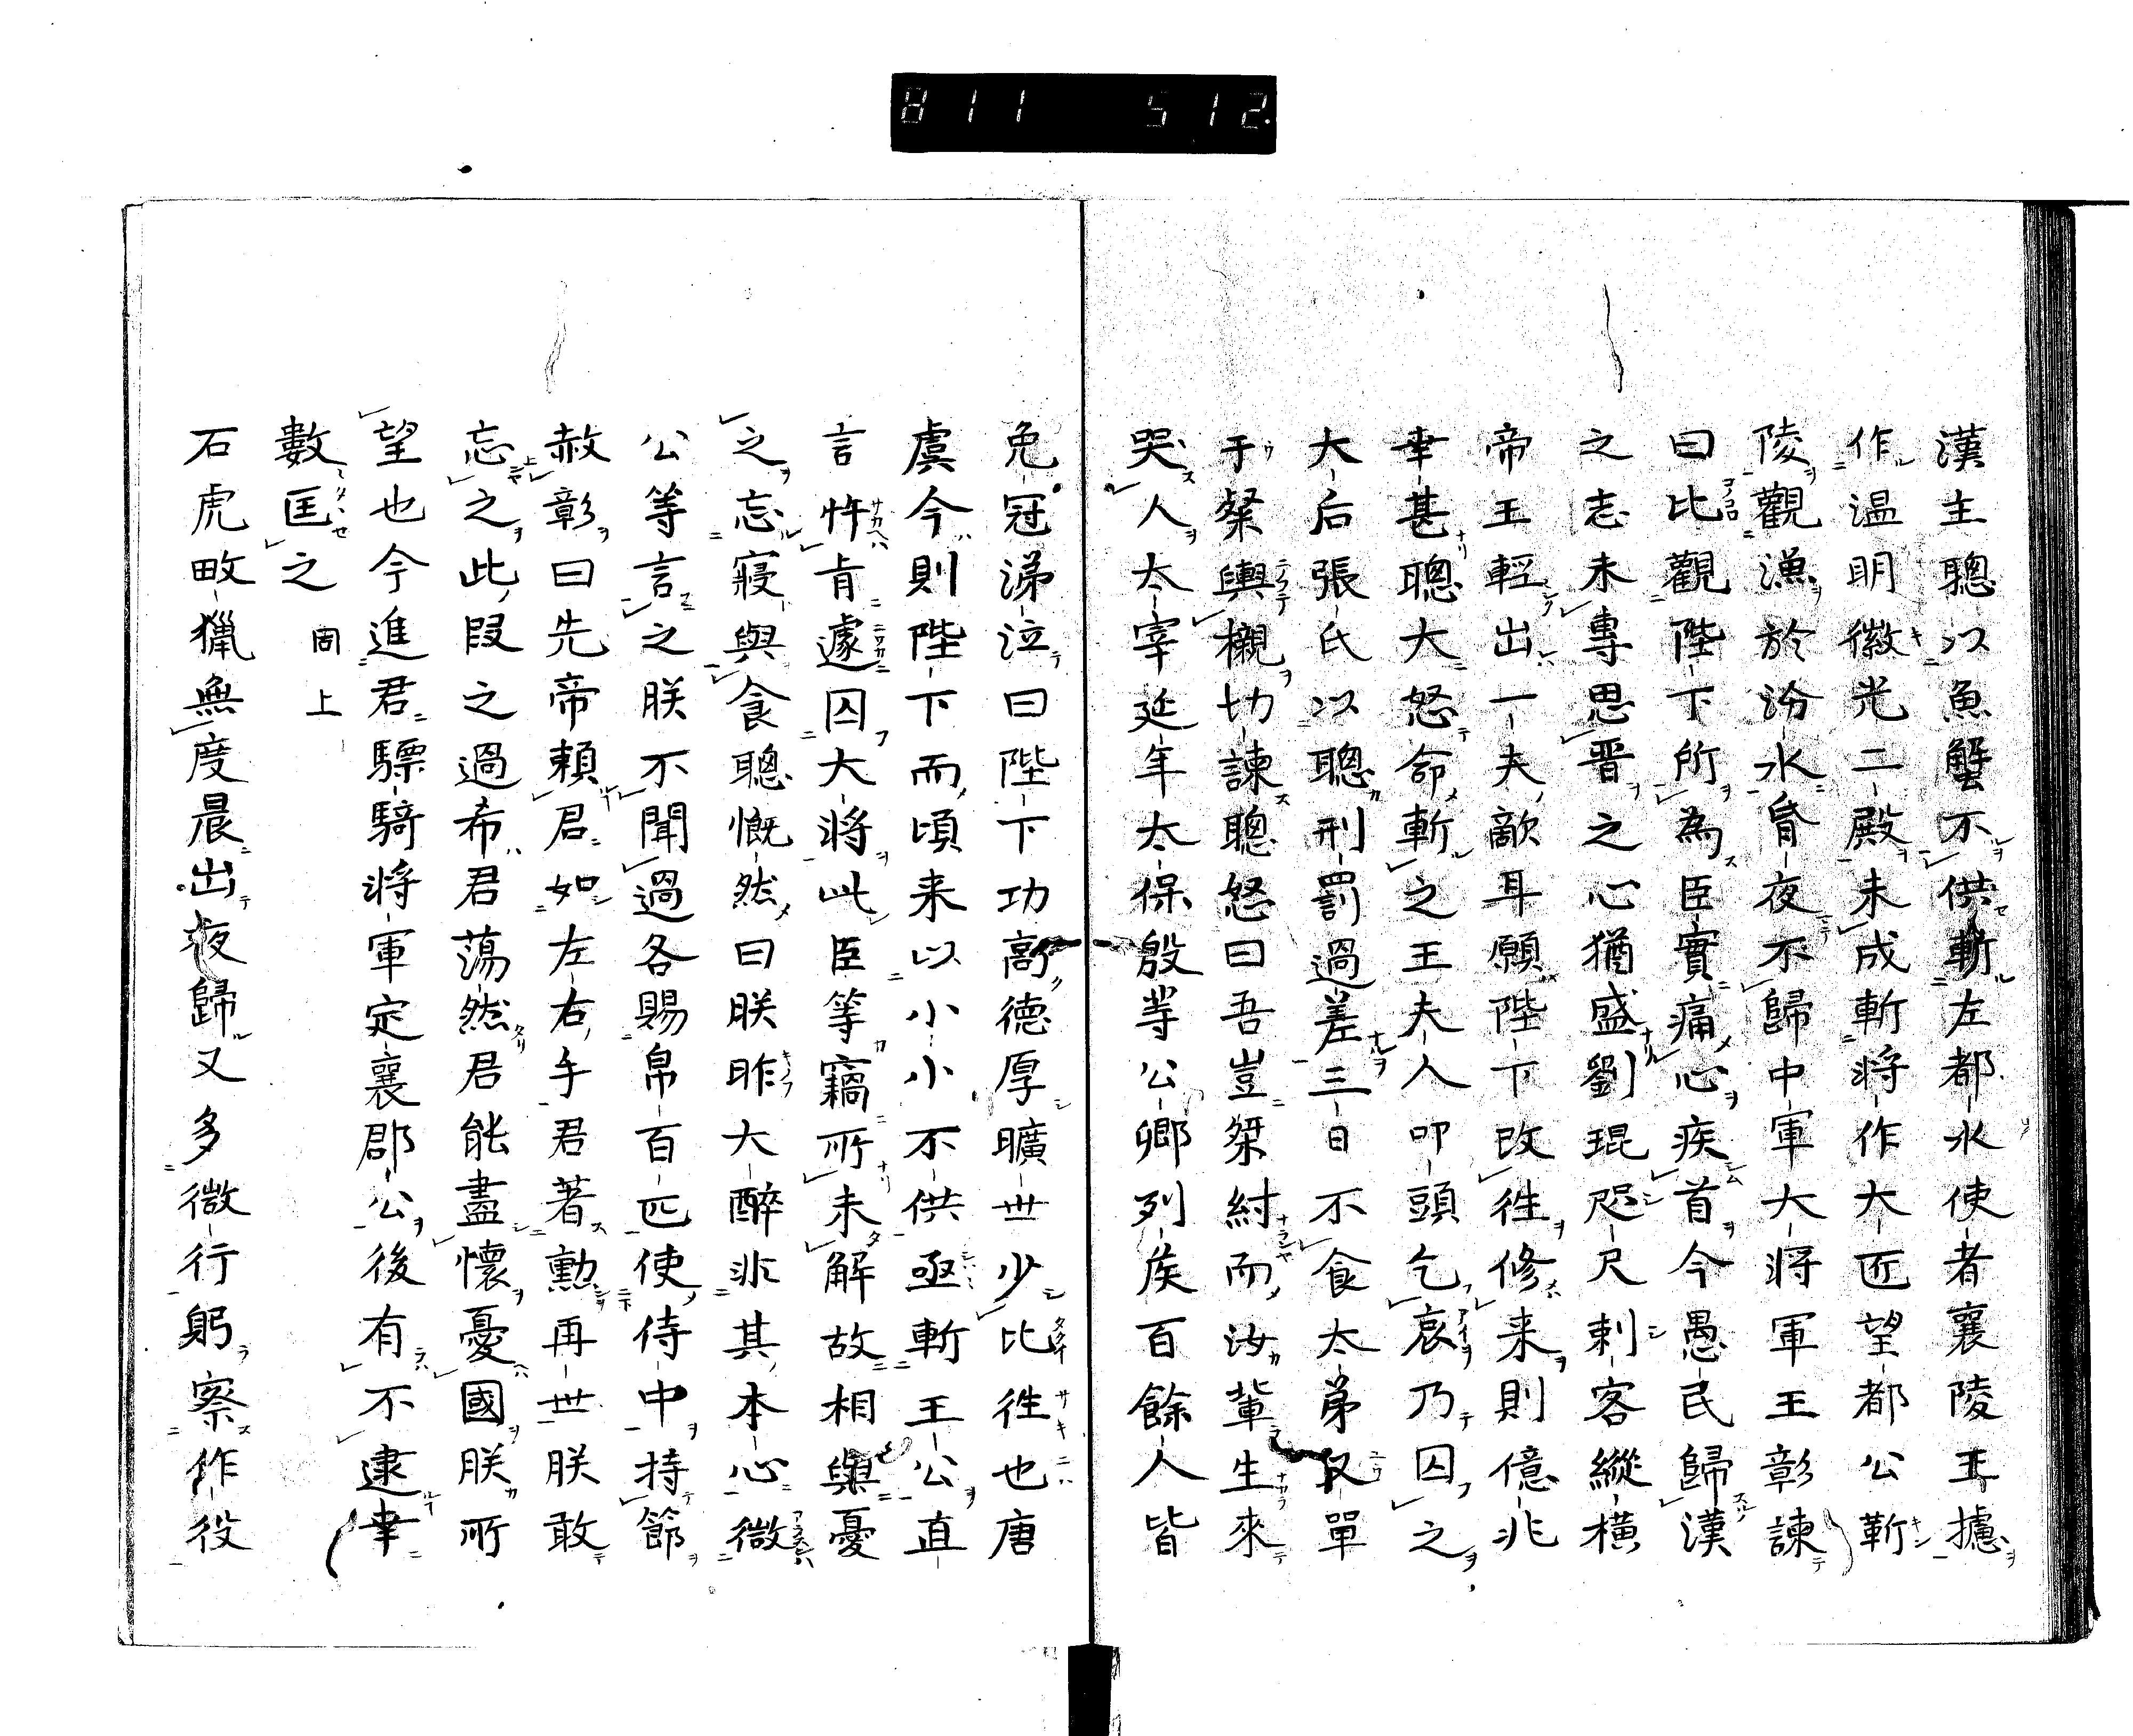 811 512
漢主聰以魚蟹不供斬左都水使者襄陵王攄
作温明徽光二殿未成斬將作大匠望都公靳
陵觀漁於汾水昏夜不歸中軍大將軍王彰諫
曰比觀陛下所為臣實痛心疾首今愚民歸漢
之志未專思晋之心猶盛劉琨咫尺刺客縱横
帝王輕出一夫敵耳願陛下改往修来則億兆
幸甚聰大怒命斬之王夫人叩頭乞哀乃囚之
大后張氏以聰刑罰過差三日不食太弟乂單
于粲輿櫬切諫聰怒曰吾豈桀紂而汝輩生來
哭人太宰延年太保殷等公卿列侯百餘人皆
免冠涕泣曰陛下功高德厚曠世少比徃也唐
虞今則陛下而頃来以小小不供亟斬王公直
言忤肯遽囚大將此臣等竊所未解故相與憂
之忘寢與食聰慨然曰朕昨大醉非其本心微
公等言之朕不聞過各賜帛百匹使侍中持節
赦彰曰先帝賴君如左右手君著勲再世朕敢
忘之此段之過希君蕩然君能盡懷憂國朕所
望也今進君驃騎將軍定襄郡公後有不逮幸
數匡之 同上
石虎畋獵無度晨出夜歸又多微行躬察作役